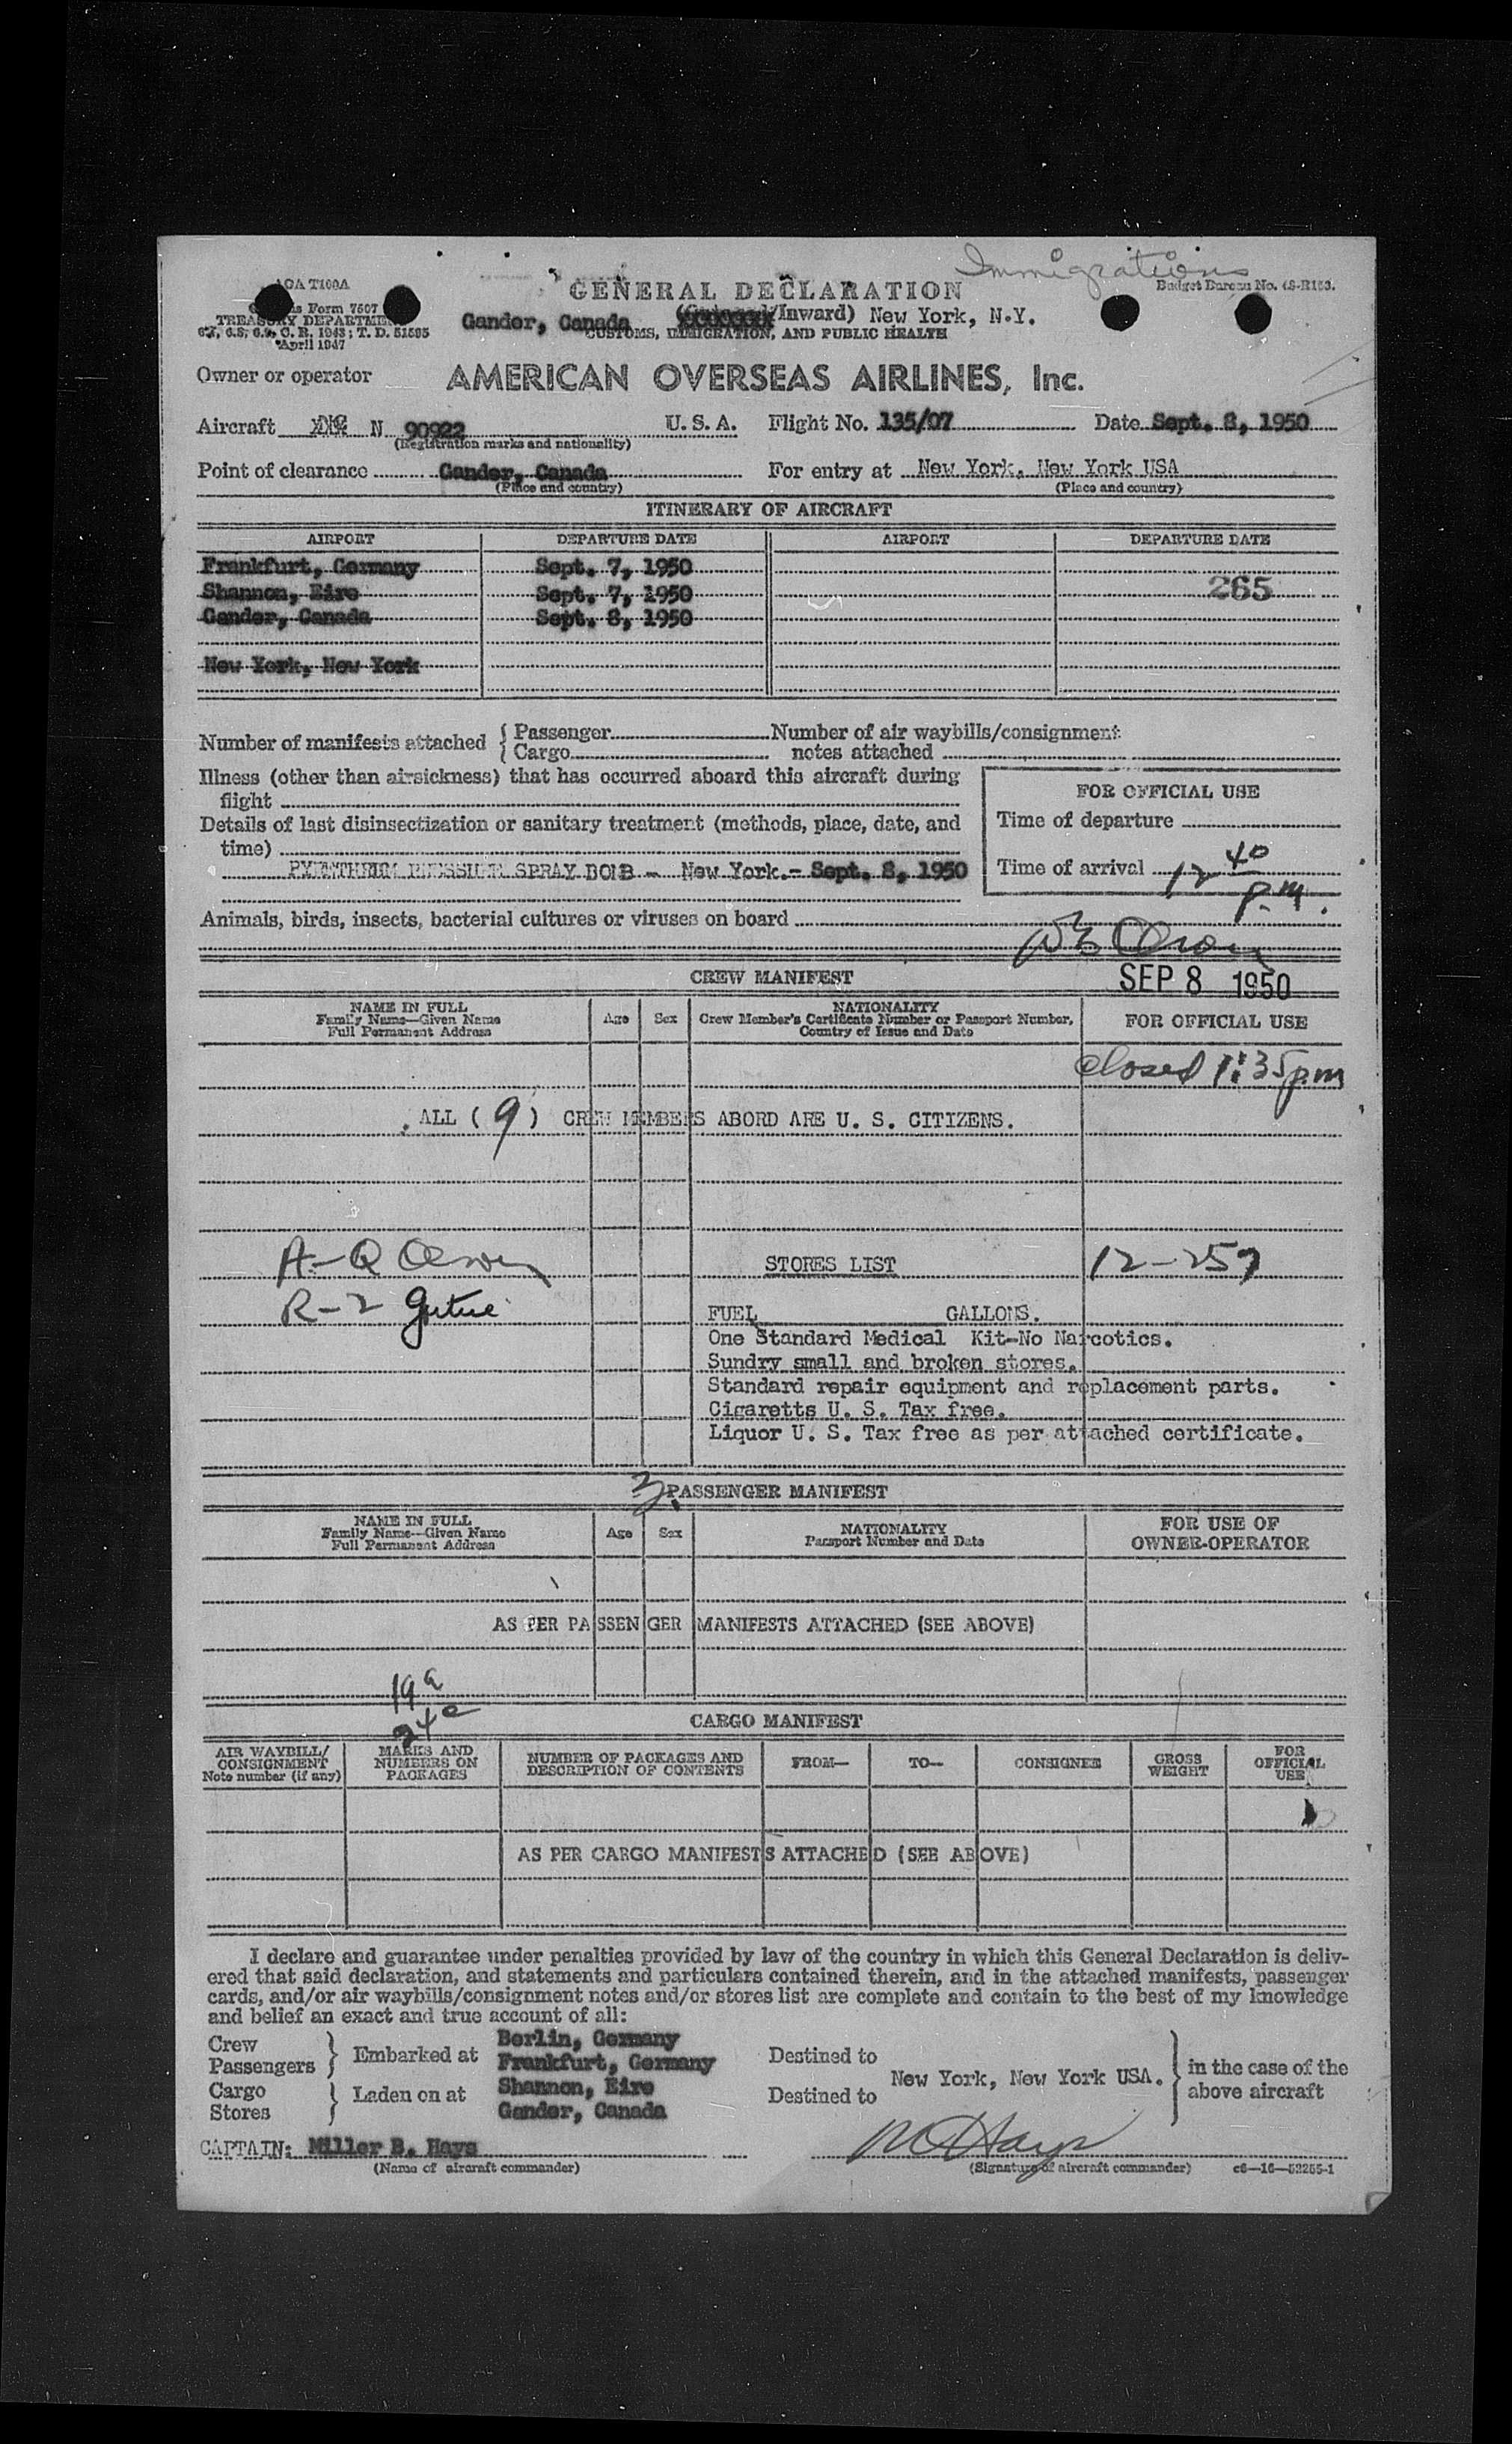 Immigrations
AOA T100A
GENERAL DECLARATION
Budget Bureau No. 48-R153.
Customs Form 7507
TREASURY DEPARTMENT
April 1947
Gander, Canada (Outward/Inward) New York, N.Y.
CUSTOMS, IMMIGRATION, AND PUBLIC HEALTH
Owner or operator AMERICAN OVERSEAS AIRLINES, Inc.
Aircraft N 90922 U. S. A. Flight No. 135/07 Date Sept. 8, 1950
(Registration marks and nationality)
Point of clearance Gander, Canada For entry at New York, New York USA
(Place and country) (Place and country)
ITINERARY OF AIRCRAFT
AIRPORT DEPARTURE DATE AIRPORT DEPARTURE DATE
Frankfurt, Germany Sept. 7, 1950
Shannon, Eire Sept. 7, 1950 265
Gander, Canada Sept. 8, 1950
New York, New York
Number of manifests attached { Passenger Number of air waybills/consignment
Cargo notes attached
Illness (other than airsickness) that has occurred aboard this aircraft during
flight
FOR OFFICIAL USE
Details of last disinsectization or sanitary treatment (methods, place, date, and
time)
Time of departure
PYRETHRUM PRESSURE SPRAY BOMB - New York.- Sept. 8, 1950
Time of arrival 12 40 p.m.
Animals, birds, insects, bacterial cultures or viruses on board
CREW MANIFEST
SEP 8 1950
NAME IN FULL Age Sex NATIONALITY FOR OFFICIAL USE
Family Name—Given Name Crew Member's Certificate Number or Passport Number,
Full Permanent Address Country of Issue and Date
Closed 1:35 p.m
ALL (9) CREW MEMBERS ABORD ARE U. S. CITIZENS.
STORES LIST 12-257
R-2
FUEL GALLONS.
One Standard Medical Kit-No Narcotics.
Sundry small and broken stores.
Standard repair equipment and replacement parts.
Cigaretts U. S. Tax free.
Liquor U. S. Tax free as per attached certificate.
3 PASSENGER MANIFEST
NAME IN FULL Age Sex NATIONALITY FOR USE OF
Family Name—Given Name Passport Number and Date OWNER-OPERATOR
Full Permanent Address
AS PER PASSENGER MANIFESTS ATTACHED (SEE ABOVE)
19a
CARGO MANIFEST
AIR WAYBILL/ MARKS AND NUMBER OF PACKAGES AND FROM— TO— CONSIGNEE GROSS FOR
CONSIGNMENT NUMBERS ON DESCRIPTION OF CONTENTS WEIGHT OFFICIAL
Note number (if any) PACKAGES USE
AS PER CARGO MANIFESTS ATTACHED (SEE ABOVE)
I declare and guarantee under penalties provided by law of the country in which this General Declaration is deliv-
ered that said declaration, and statements and particulars contained therein, and in the attached manifests, passenger
cards, and/or air waybills/consignment notes and/or stores list are complete and contain to the best of my knowledge
and belief an exact and true account of all:
Crew Berlin, Germany
Passengers } Embarked at Frankfurt, Germany Destined to New York, New York USA. } in the case of the
Cargo } Laden on at Shannon, Eire Destined to above aircraft
Stores Gander, Canada
CAPTAIN: Miller B. Hays
(Name of aircraft commander) (Signature of aircraft commander) c6—16—52255-1